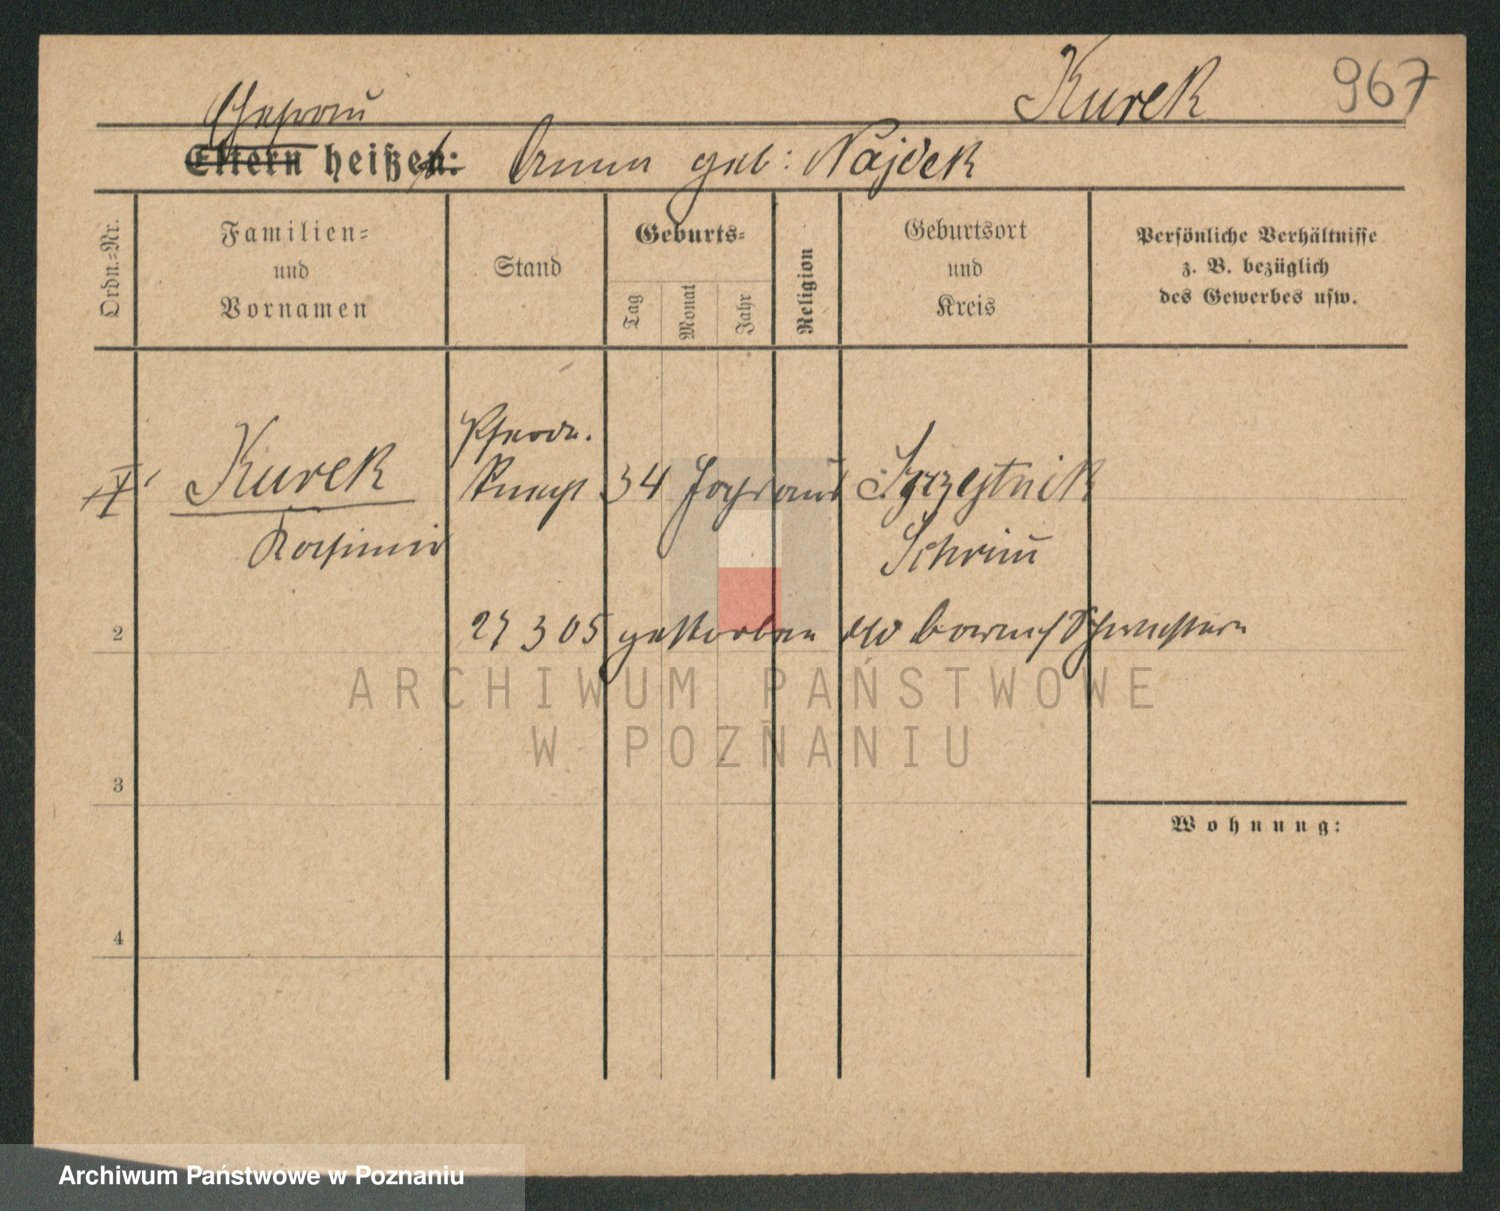 Kurek 967
Ehefrau
Eltern heißen: Anna geb: Najdek
Ordn.=Nr.
Familien=
und
Vornamen
Stand
Geburts=
Tag
Monat
Jahr
Religion
Geburtsort
und
Kreis
Persönliche Verhältnisse
z. B. bezüglich
des Gewerbes usw.
Pferde.
Kurek Knecht 34 Jahr
Kasimir Schrim
2 27 3 05 gestorben Schwestern
ARCHIWUM PAŃSTWOWE
W POZNANIU
3
Wohnung:
4
Archiwum Państwowe w Poznaniu